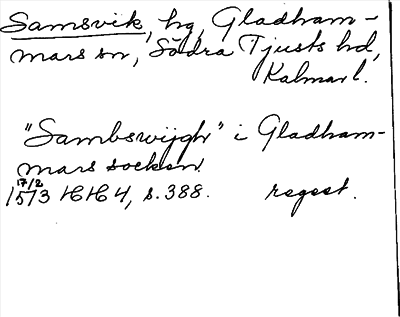 Samsvik, hg, Gladham-
mars sn, Södra Tjusts hd,
Kalmar l.
"Sambswijgh" i Gladham-
mars socken
17/2
1573 HH 4, s. 388. regest.